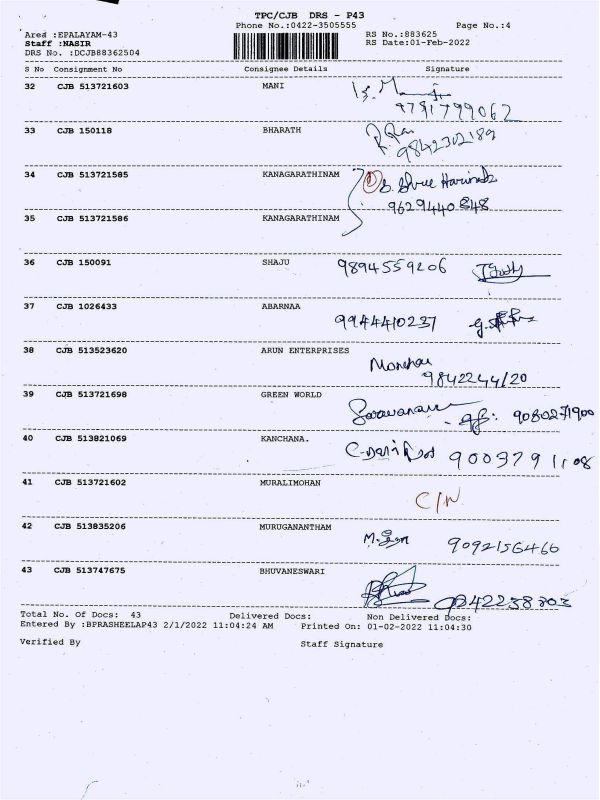 TPC/CJB DRS - P43
Phone No.:0422-3505555 Page No.:4
Ared :EPALAYAM-43 RS No.:883625
Staff :NASIR RS Date:01-Feb-2022
DRS No. :DCJB88362504
S No Consignment No Consignee Details Signature
32 CJB 513721603 MANI
9791799062
33 CJB 150118 BHARATH
9842302189
34 CJB 513721585 KANAGARATHINAM
9629440848
35 CJB 513721586 KANAGARATHINAM
36 CJB 150091 SHAJU 9894559206
37 CJB 1026433 ABARNAA 9944410237
38 CJB 513523620 ARUN ENTERPRISES
9842244120
39 CJB 513721698 GREEN WORLD
9080271900
40 CJB 513821069 KANCHANA.
9003791108
41 CJB 513721602 MURALIMOHAN
C/N
42 CJB 513835206 MURUGANANTHAM
9092156466
43 CJB 513747675 BHUVANESWARI
9842238303
Total No. Of Docs: 43 Delivered Docs: Non Delivered Docs:
Entered By :BPRASHEELAP43 2/1/2022 11:04:24 AM Printed On: 01-02-2022 11:04:30
Verified By Staff Signature